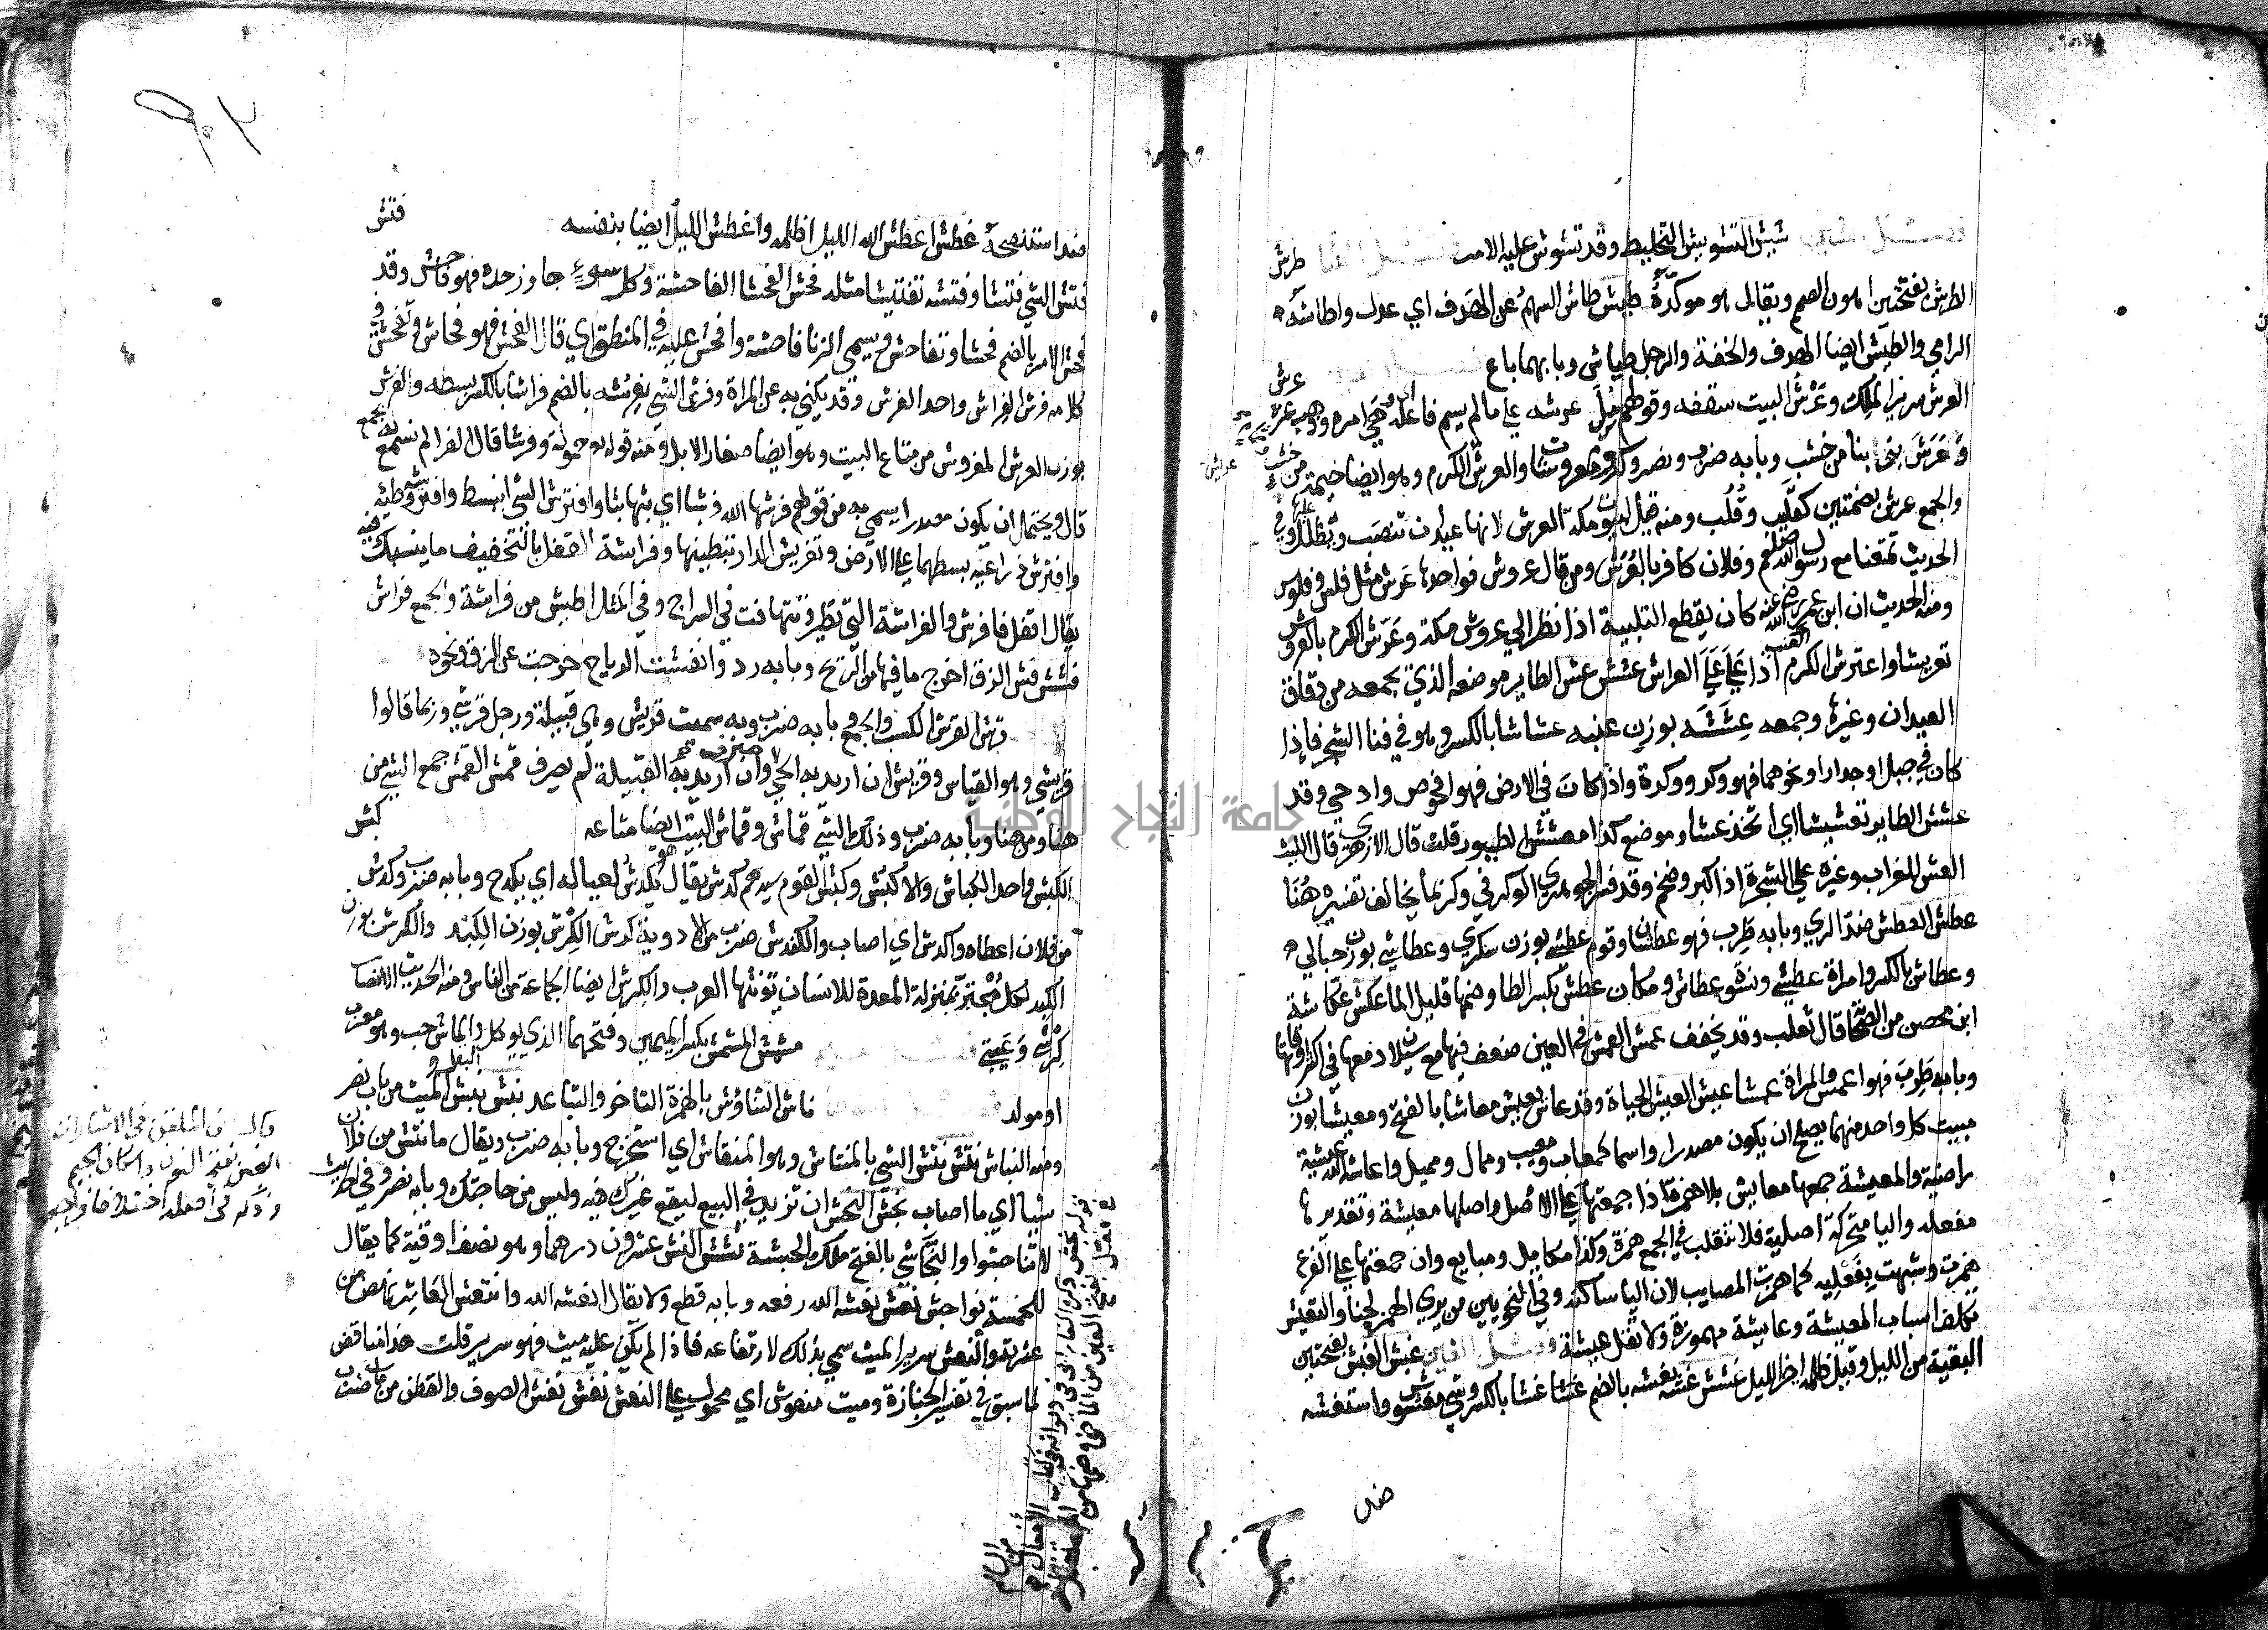 شيش التشويش التخليط وقد تشوش عليه الامر
طرش
الطرش بفتحتين اهون الصمم ويقال هو مولد طيش طاش السهم عن الهدف اي عدل واطاشه
الرامي والطيش ايضا النزق والخفة والرجل طياش وبابهما باع
عرش
العرش سرير الملك وعرش البيت سقفه وقولهم ثل عرشه على ما لم يسم فاعله اي وهى امره وذهب عزه
وعرش بنى بنا من خشب وبابه ضرب ونصر وكروم معروشات والعرش الكرم وهو ايضا خيمة من خشب
والجمع عرش بضمتين كقليب وقلب ومنه قيل لبيوت مكة العرش لانها عيدان تنصب ويظلل عليها وفي
الحديث تمتعنا مع رسول الله صلعم وفلان كافر بالعرش ومن قال عروش فواحدها عرش مثل فلس وفلوس
ومنه الحديث ان ابن عمر رضي الله عنه كان يقطع التلبية اذا نظر الى عروش مكة وعرش الكرم بالعروش
تعريشا واعترش العنب اذا علا على العراش عشش عش الطاير موضعه الذي يجمعه من دقاق
العيدان وغيرها وجمعه عششه بوزن عنبه عشاشا بالكسر وهو في افنان الشجر فاذا
كان في جبل او جدار او نحوهما فهو وكر ووكرة واذا كان في الارض فهو افحوص وادحي وقد
عشش الطاير تعشيشا اي اتخذ عشا وموضع كذا معشش الطيور قلت قال الازهري قال الليث
العش للغراب وغيره على الشجرة اذا اكبر وضخم وقد فسر الجوهري الوكر في وكر بما يخالف تفسيره هنا
عطش العطش ضد الري وبابه طرب فهو عطشان وقوم عطشى بوزن سكرى وعطاشى بوزن حبالى
وعطاش بالكسر وامراة عطشى ونسوة عطاش ومكان عطش بكسر الطا وضمها قليل الما عكش عكاشة
ابن محصن من الصحابة قال ثعلب وقد يخفف عمش العمش في العين ضعف رؤيتها مع سيلان دمعها في اكثر اوقاتها
وبابه طرب فهو اعمش والمراة عمشا عيش العيش الحياة وقد عاش يعيش معاشا بالفتح ومعيشا بوزن
مبيت كل واحد منهما يصلح ان يكون مصدرا واسما كمعاب ومعيب وممال ومميل واعاشه الله عيشة
راضية والمعيشة جمعها معايش بلا همز اذا جمعتها على الاصل واصلها معيشة وتقديرها
مفعلة واليا متحركة اصلية فلا تنقلب في الجمع همزة وكذا مكايل ومبايع وان جمعتها على الفرع
همزت وشبهت بفعيلة كما همزت المصايب لان اليا ساكنه وفي النحويين من يرى الهمز لحنا والتعيش
تكلف اسباب المعيشة وعايشة مهموزة ولا تقل عيشة فصل الغين غبش الغبش بفتحتين
البقية من الليل وقيل ظلمة اخر الليل غشش غشه يغشه بالضم غشا بالكسر وشي مغشوش واستغشه
ضد
ضد استنصحه غطش اغطش الله الليل اظلمه واغطش الليل ايضا بنفسه
فتش
فتش الشي فتشا وفتشه تفتيشا مثله فحش الفحشا الفاحشة وكل سوء جاوز حده فهو فاحش وقد
فحش الامر بالضم فحشا وتفاحش ويسمى الزنا فاحشة وافحش عليه في المنطق اي قال الفحش فهو فحاش وتفحش في
كلامه فرش الفراش واحد الفرش وقد يكنى به عن المراة وفرش الشي يفرشه بالضم فراشا بالكسر بسطه والفرش
بوزن العرش المفروش من متاع البيت وهو ايضا صغار الابل ومنه قوله حمولة وفرشا قال الفرا لم نسمع له بجمع
قال ويحتمل ان يكون مصدرا سمي به من قولهم فرشها الله فرشا اي بثها بثا وافترش الشي انبسط وافترشه وطئه
وافترش ذراعيه بسطهما على الارض وتفريش الدار تبطينها وفراشة القفل بالتخفيف ما ينشب فيه
يقال اقفل فافرش والفراشة التي تطير وتتهافت في السراج وفي المثل اطيش من فراشة والجمع فراش
فشش فش الزق اخرج ما فيه من الريح وبابه رد وانفشت الرياح خرجت عن الزق ونحوه
قرش القرش الكسب والجمع وبابه ضرب وبه سميت قريش وهي قبيلة ورجل قرشي وربما قالوا
قريشي وهو القياس وقريش ان اريد به الحي صرف وان اريد به القبيلة لم يصرف قمش القمش جمع الشي من
هنا ومن هنا وبابه ضرب وذلك الشي قماش وقماش البيت ايضا متاعه
كبش
الكبش واحد الكباش والاكبش وكبش القوم سيدهم كدش يقال هو يكدش لعياله اي يكدح وبابه ضرب وكدش
من فلان اعطاه واكدش اي اصاب والكندش ضرب من الادوية كرش الكرش بوزن الكبد والكرش بوزن
الكبد لكل مجتر بمنزلة المعدة للانسان تؤنثها العرب والكرش ايضا الجماعة من الناس ومنه الحديث الانصار
كرشي وعيبتي مشمش المشمش بكسر الميمين وفتحهما الذي يوكل الماش حب وهو معرب
او مولد ناش التناوش بالهمزة التاخر والتباعد نبش نبش البقل والميت من باب نصر
ومنه النباش نتش نتش الشي بالمنتاش وهو المنقاش اي استخرج وبابه ضرب ويقال ما نتش من فلان
شيا اي ما اصاب نجش النجش ان تزيد في البيع ليقع غيرك فيه وليس من حاجتك وبابه نصر وفي الحديث
لا تناجشوا والنجاشي بالفتح ملك الحبشة نشش النش عشرون درهما وهو نصف اوقية كما يقال
للخمسة نواة نعش نعشه الله رفعه وبابه قطع ولا يقال انعشه الله وانتعش العاثر نهض من
عثرته والنعش سرير الميت سمي بذلك لارتفاعه فاذا لم يكن عليه ميت فهو سرير قلت هذا مناقض
لما سبق في تفسير الجنازة وميت منعوش اي محمول على النعش نفش نفش الصوف والقطن من باب ضرب
جامعة النجاح الوطنية